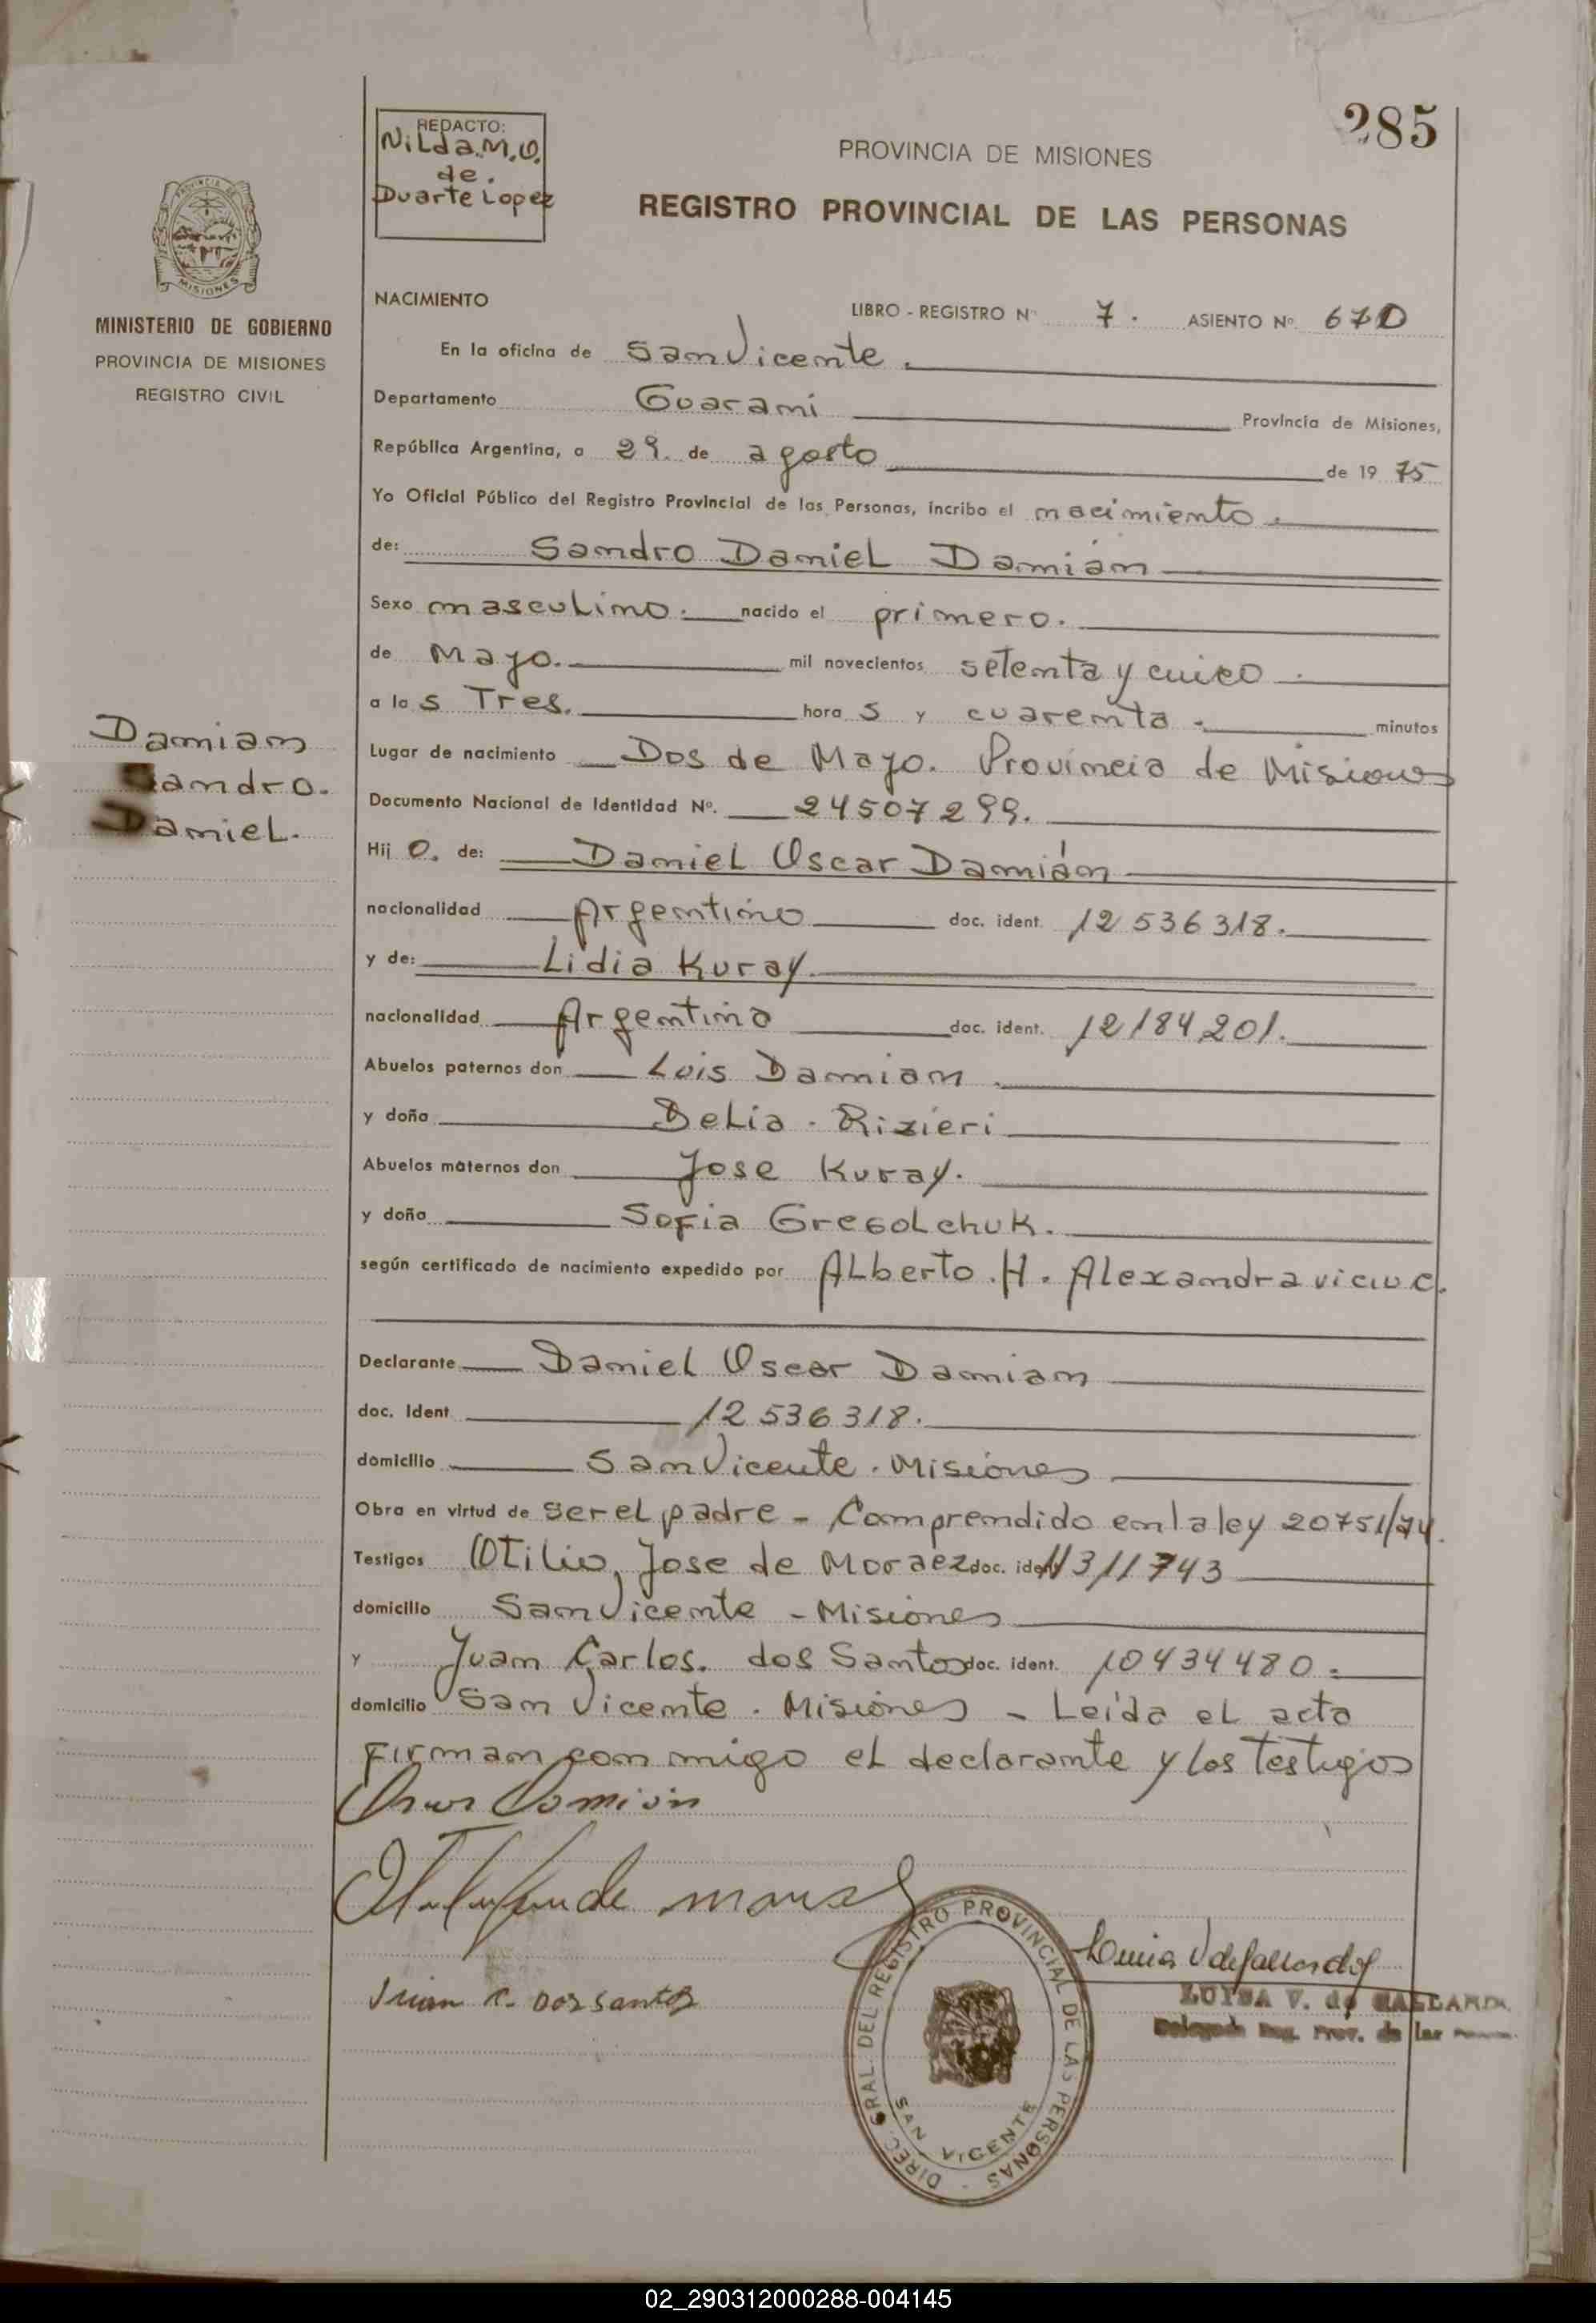 285
REDACTO:
Nilda.M.O.
de.
Duarte Lopez
PROVINCIA DE MISIONES
REGISTRO PROVINCIAL DE LAS PERSONAS
PROVINCIA DE MISIONES
MINISTERIO DE GOBIERNO
PROVINCIA DE MISIONES
REGISTRO CIVIL
NACIMIENTO LIBRO - REGISTRO Nº 7. ASIENTO Nº 670
En la oficina de San Vicente.
Departamento Guarani Provincia de Misiones,
República Argentina, a 29. de agosto de 19 75
Yo Oficial Público del Registro Provincial de las Personas, incribo el nacimiento.
de: Sandro Daniel Damián
Sexo masculino. nacido el primero.
de Mayo. mil novecientos setenta y cinco.
a las Tres. horas y cuarenta. minutos
Damian
Sandro.
Daniel.
Lugar de nacimiento Dos de Mayo. Provincia de Misiones
Documento Nacional de Identidad Nº. 24507299.
Hijo. de: Daniel Oscar Damián
nacionalidad Argentino doc. ident. 12 536 318.
y de: Lidia Kuray.
nacionalidad Argentina doc. ident. 12184201.
Abuelos paternos don Luis Damian.
y doña Delia. Rizieri
Abuelos maternos don Jose Kuray.
y doña Sofia Gregolchuk.
según certificado de nacimiento expedido por Alberto. H.
Declarante Daniel Oscar Damian
doc. Ident. 12 536 318.
domicilio San Vicente. Misiones
Obra en virtud de ser el padre - Comprendido en la ley 20751/74.
Testigos Otilio, Jose de Moraez doc. ident. 11311743
domicilio San Vicente - Misiones
y Juan Carlos. dos Santos doc. ident. 10434480.
domicilio San Vicente. Misiones - Leída el acta
firman conmigo el declarante y los testigos
Oscar Damián
Juan C. Dos Santos
DIREC. GRAL. DEL REGISTRO PROVINCIAL DE LAS PERSONAS
SAN VICENTE
LUISA V. de GALLARDO
Delegada Reg. Prov. de las
02_290312000288-004145